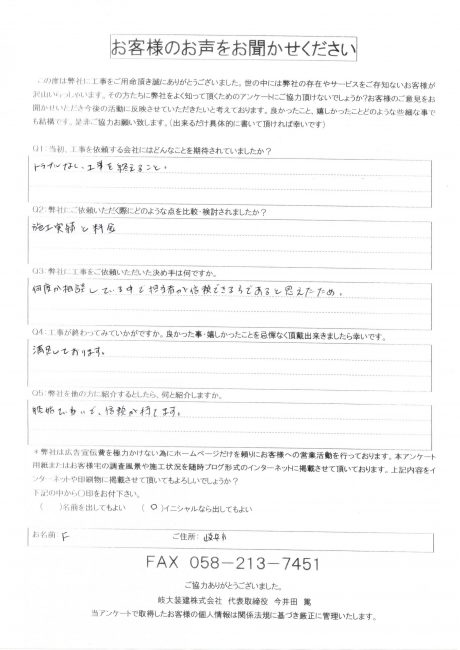 お客様のお声をお聞かせください
この度は弊社に工事をご用命頂き誠にありがとうございました。世の中には弊社の存在やサービスをご存知ないお客様が
沢山いらっしゃいます。その方たちに弊社をよく知って頂くためのアンケートにご協力頂けないでしょうか?お客様のご意見をお
聞かせいただき今後の活動に反映させていただきたいと考えております。良かったこと、嬉しかったことどのような些細な事で
も結構です。是非ご協力お願い致します。(出来るだけ具体的に書いて頂ければ幸いです)
Q1:当初、工事を依頼する会社にはどんなことを期待されていましたか?
トラブルなし、工事を終えること。
Q2:弊社にご依頼いただく際にどのような点を比較・検討されましたか?
施工実績と料金
Q3:弊社に工事をご依頼いただいた決め手は何ですか。
何度か相談している中で担当者が信頼できそうであると思えたため。
Q4:工事が終わってみていかがですか。良かった事・嬉しかったことを忌憚なく頂戴出来きましたら幸いです。
満足しております。
Q5:弊社を他の方に紹介するとしたら、何と紹介しますか。
で、信頼が持てます。
*弊社は広告宣伝費を極力かけない為にホームページだけを頼りにお客様への営業活動を行っております。本アンケート
用紙またはお客様宅の調査風景や施工状況を随時ブログ形式のインターネットに掲載させて頂いております。上記内容をイ
ンターネットや印刷物に掲載させて頂いてもよろしいでしょうか?
下記の中から〇印をお付下さい。
( )名前を出してもよい (○)イニシャルなら出してもよい
お名前 F ご住所: 岐阜市
FAX 058-213-7451
ご協力ありがとうございました。
岐大装建株式会社 代表取締役 今井田 篤
当アンケートで取得したお客様の個人情報は関係法規に基づき厳正に管理いたします。